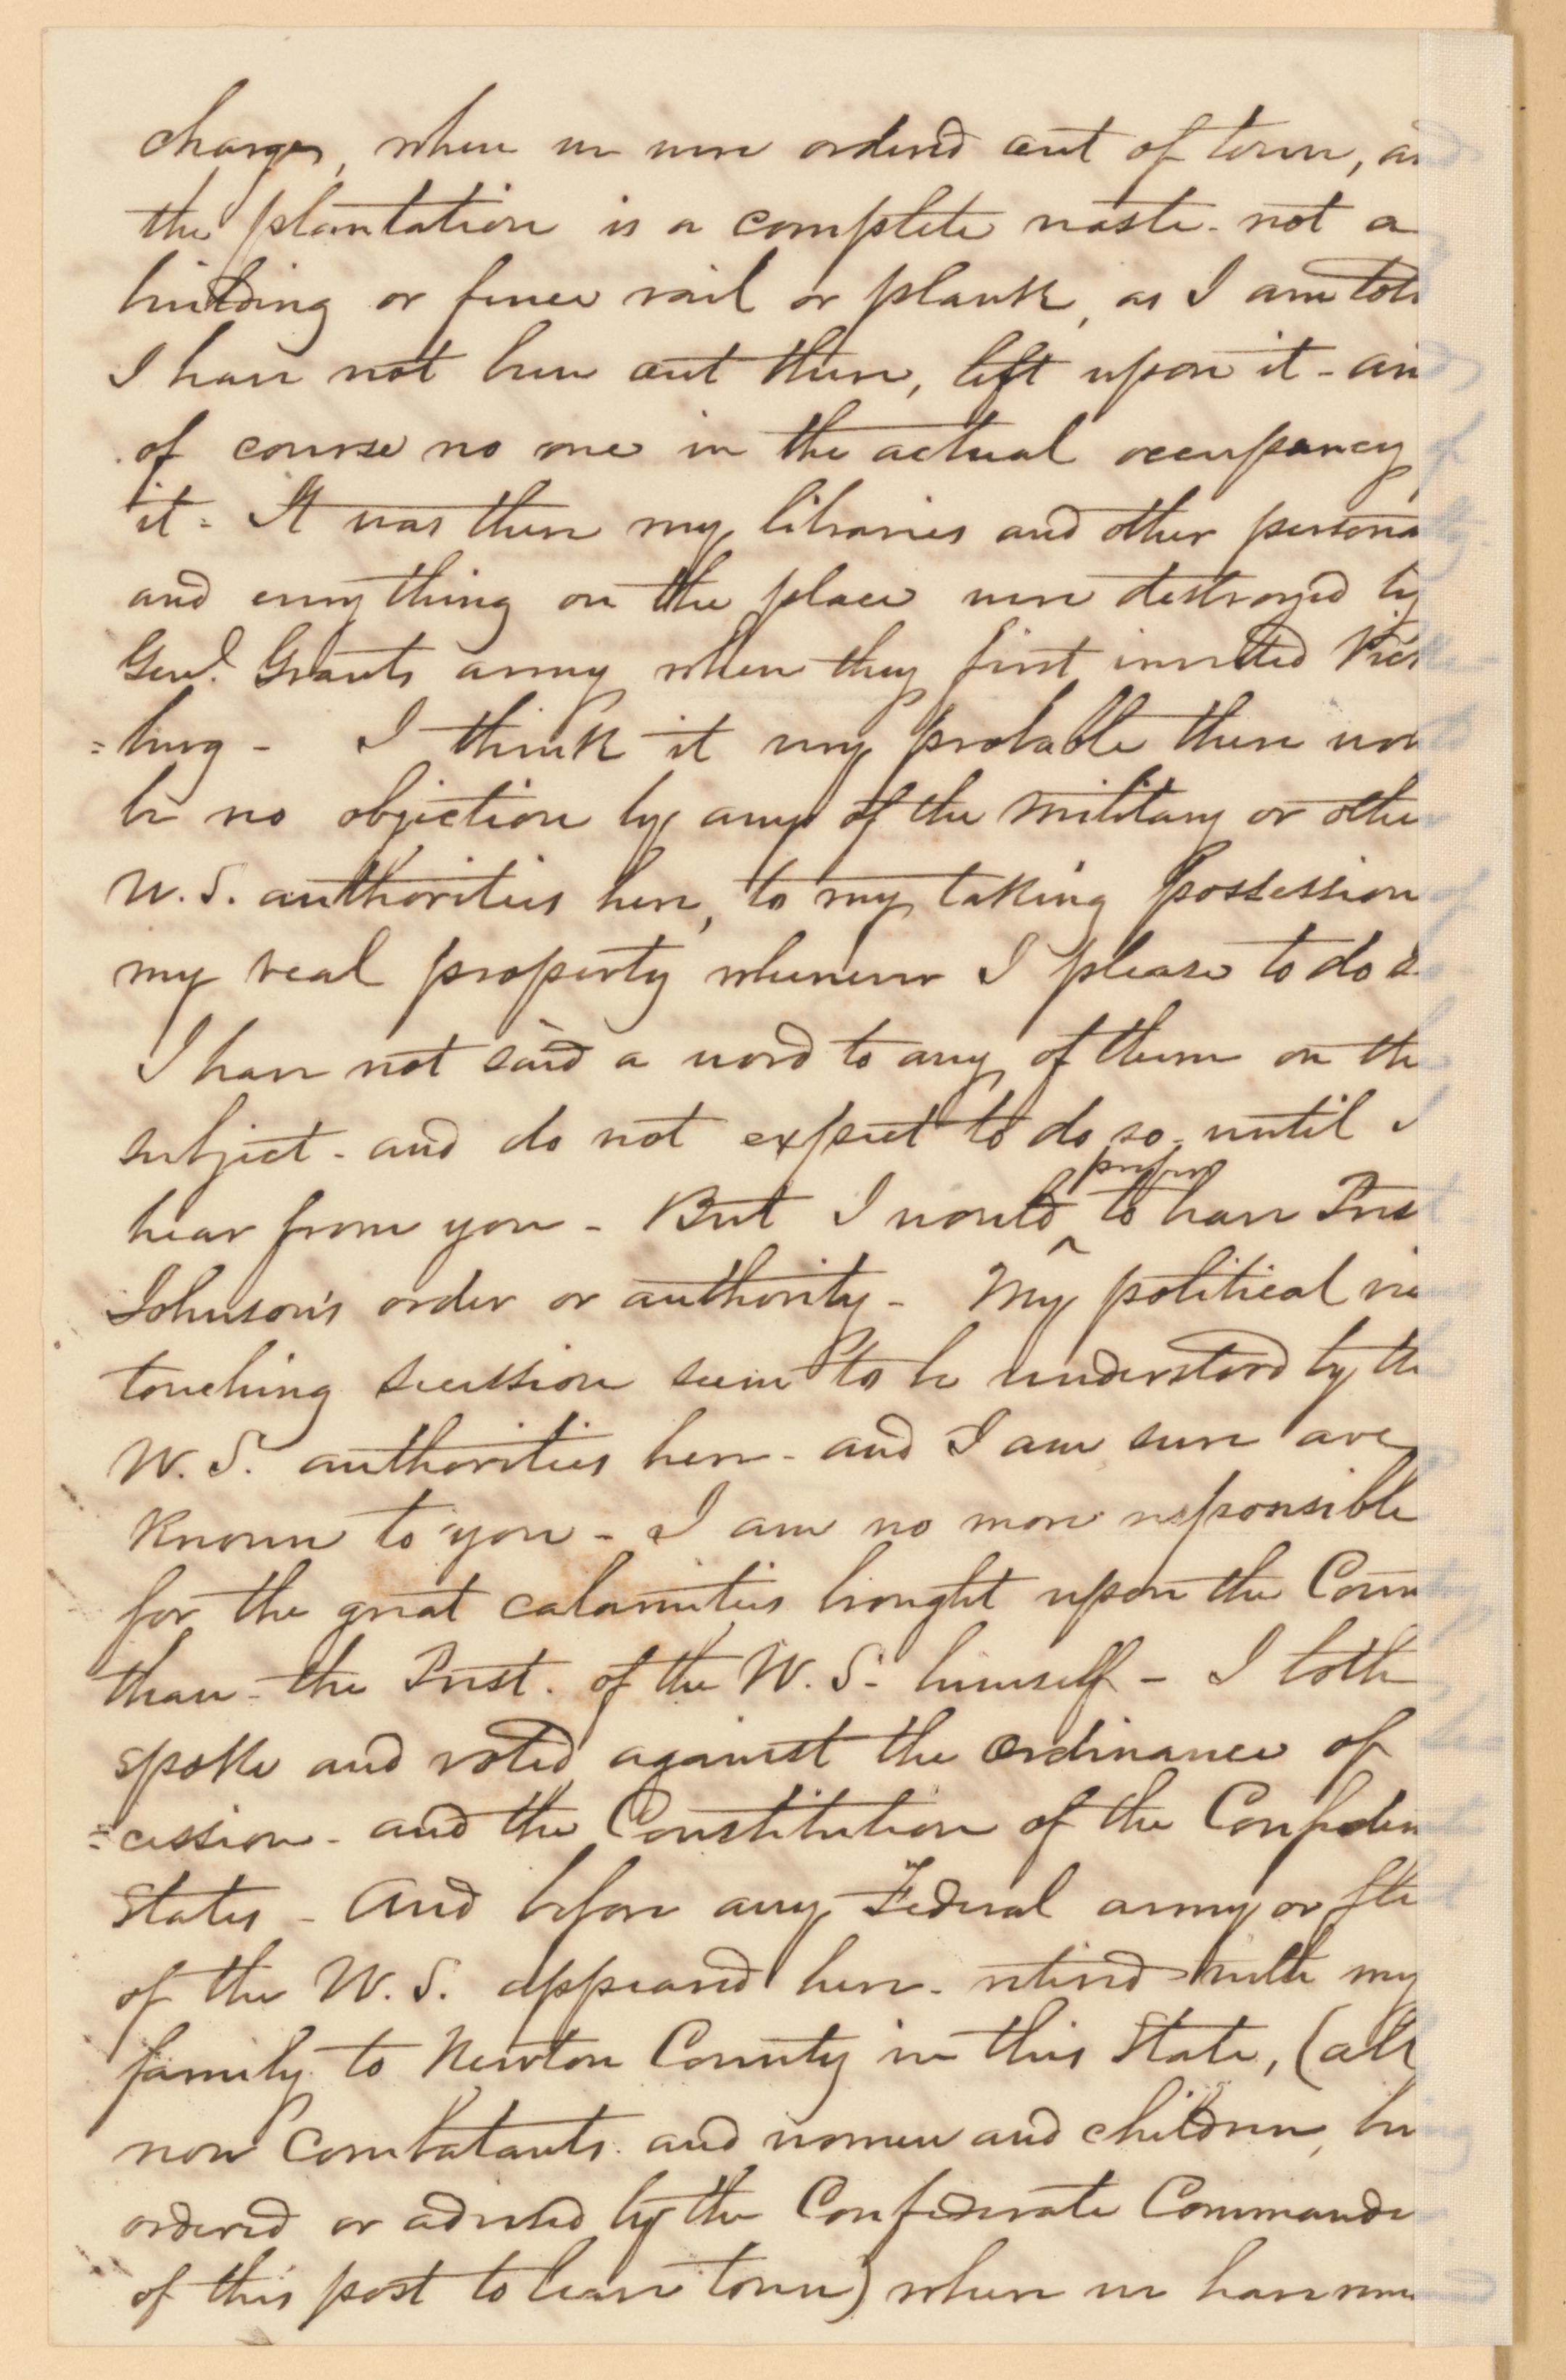 charge, when we were ordered out of town, and
the plantation is a complete waste. not a
building or fence rail or plank, as I am told
I have not been out there, left upon it - and
of course no one in the actual occupancy of
it = It was there my libraries and other personalty
and every thing on the place were destroyed by
Genl. Grants army when they first invested Vicks
=burg - I think it very probable there would
be no objection by any of the military or other
U.S. authorities here, to my taking possession of
my real property whenever I please to do so
I have not said a word to any of them on the
subject - and do not expect to do so - until I
hear from you - But I would prefer to have Prest
Johnson's order or authority - My political views
touching secession seem to be understood by the
U.S. authorities here - and I am sure are
known to you - I am no more responsible
for the great calamities brought upon the Country
than - the Prest. of the U.S. himself - I both
spoke and voted against the ordinance of
=cession - and the Constitution of the Confederate
States - And before any Federal army or fleet
of the U.S. appeared here - retired with my
family to Newton County in this State, (all
non combatants and women and children, being
ordered or advised by the Confederate Commander
of this post to leave town) where we have